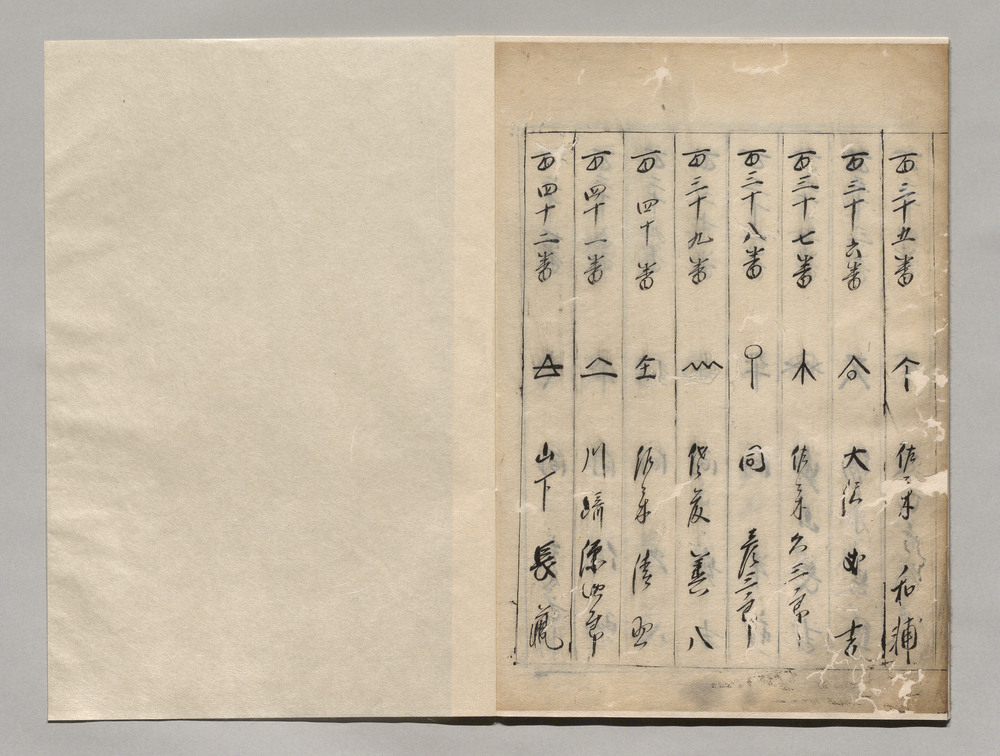 百三十五番 佐々木 和
百三十六番 大 吉
百三十七番 佐々木 久三郎
百三十八番 同 彦三郎
百三十九番 善八
百四十番 清
百四十一番 川崎 源四郎
百四十二番 山下 長蔵